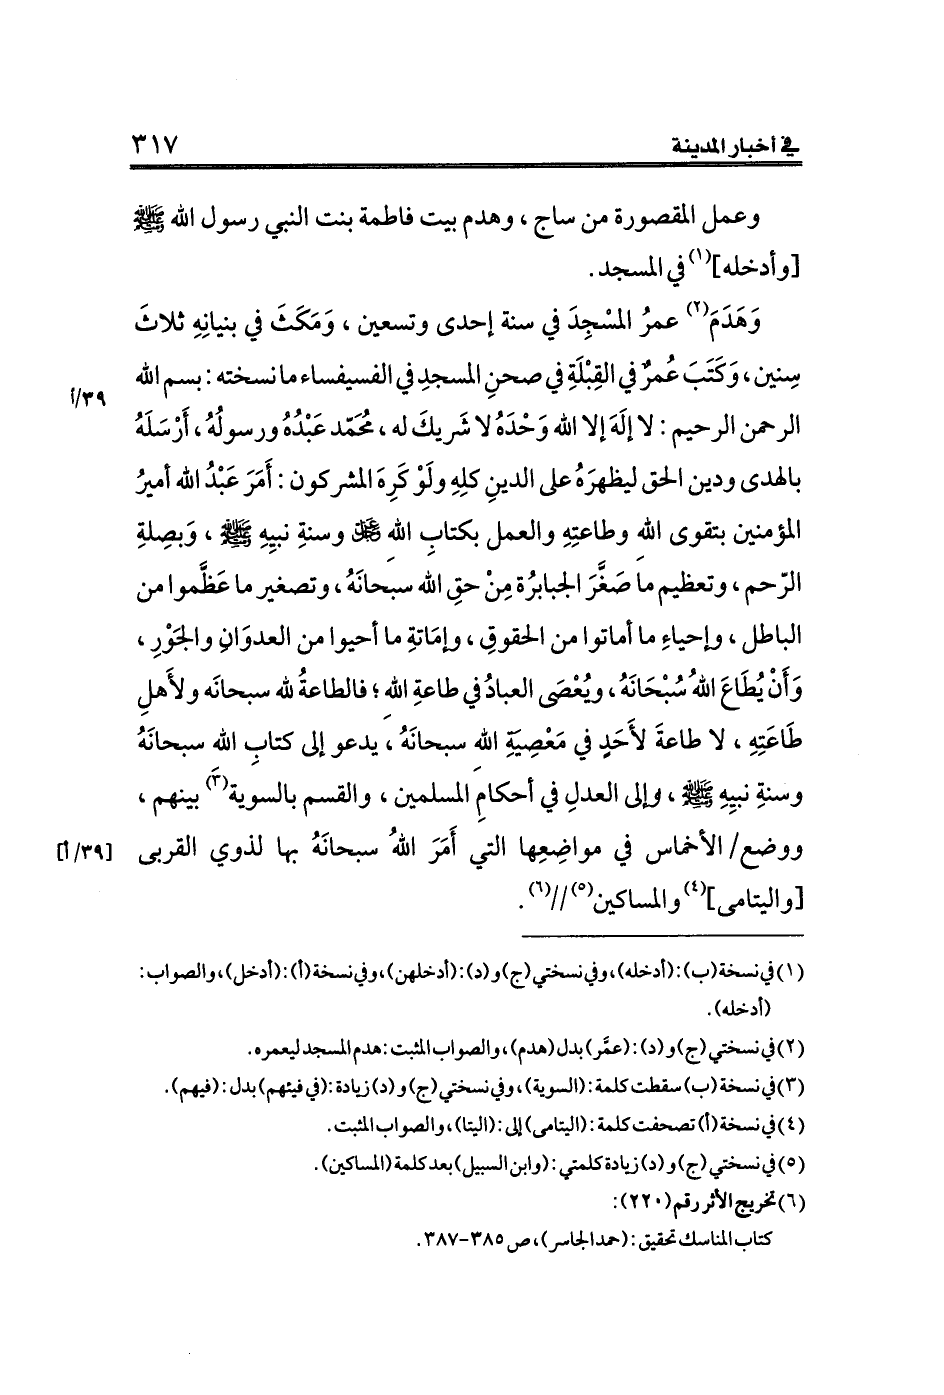 في أخبار المدينة ٣١٧
وعمل المقصورة من ساج ، وهدم بيت فاطمة بنت النبي رسول الله ﷺ
[وأدخله](١) في المسجد .
وَهَدَمَ(٢) عمرُ المسْجِدَ في سنة إحدى وتسعين ، وَمَكَثَ في بنيانِهِ ثلاثَ
سِنين ، وَكَتَبَ عُمرٌ في القِبْلَةِ في صحنِ المسجدِ في الفسيفساء ما نسخته : بسم الله
٣٩/أ
الرحمن الرحيم : لا إلَهَ إلا الله وَحْدَهُ لا شريكَ له ، محُمّد عَبْدُهُ ورسولُهُ ، أَرْسَلَهُ
بالهدى ودين الحق ليظهرَهُ على الدينِ كلِهِ ولَوْ كَرِهَ المشركون : أَمَرَ عَبْدُ الله أميرُ
المؤمنين بتقوى اللهِ وطاعتِهِ والعمل بكتابِ اللهِ ﷻ وسنةِ نبيِهِ ﷺ ، وَبصِلةِ
الرّحم ، وتعظيم ما صَغَّرَ الجبابرُة مِنْ حقِ الله سبحانَهُ ، وتصغير ما عَظَّموا من
الباطل ، وإحياءِ ما أماتوا من الحقوقِ ، وإمَاتةِ ما أحيوا من العدوَانِ والجَوْرِ ،
وَأَنْ يُطَاعَ اللهُ سُبْحَانَهُ ، ويُعْصَى العبادُ في طاعةِ الله ؛ فالطاعةُ لله سبحانَه ولأَهلِ
طَاعَتِهِ ، لا طاعةَ لأَحَدٍ في مَعْصِيَةِ اللهِ سبحانَهُ ، يدعو إلى كتابِ اللهِ سبحانَهُ
وسنةِ نبيِهِ ﷺ ، وإلى العدلِ في أحكامِ المسلمين ، والقسمِ بالسوية(٣) بينهم ،
ووضع/ الأخماس في مواضِعِها التي أَمَرَ اللهُ سبحانَهُ بها لذوي القربى
[٣٩/أ]
[واليتامى](٤) والمساكين(٥)//(٦) .
(١) في نسخة (ب) : (أدخله) ، وفي نسختي (ج) و (د) : (أدخلهن) ، وفي نسخة (أ) : (أدخل) ، والصواب :
(أدخله) .
(٢) في نسختي (ج) و (د) : (عمَّر) بدل (هدم) ، والصواب المثبت : هدم المسجد ليعمره .
(٣) في نسخة (ب) سقطت كلمة : (السوية) ، وفي نسختي (ج) و (د) زيادة : (في فيئهم) بدل : (فيهم) .
(٤) في نسخة (أ) تصحفت كلمة : (اليتامى) إلى : (اليتا) ، والصواب المثبت .
(٥) في نسختي (ج) و (د) زيادة كلمتي : (وابن السبيل) بعد كلمة (المساكين) .
(٦) تخريج الأثر رقم (٢٢٠) :
كتاب المناسك تحقيق : (حمد الجاسر) ، ص ٣٨٥-٣٨٧ .